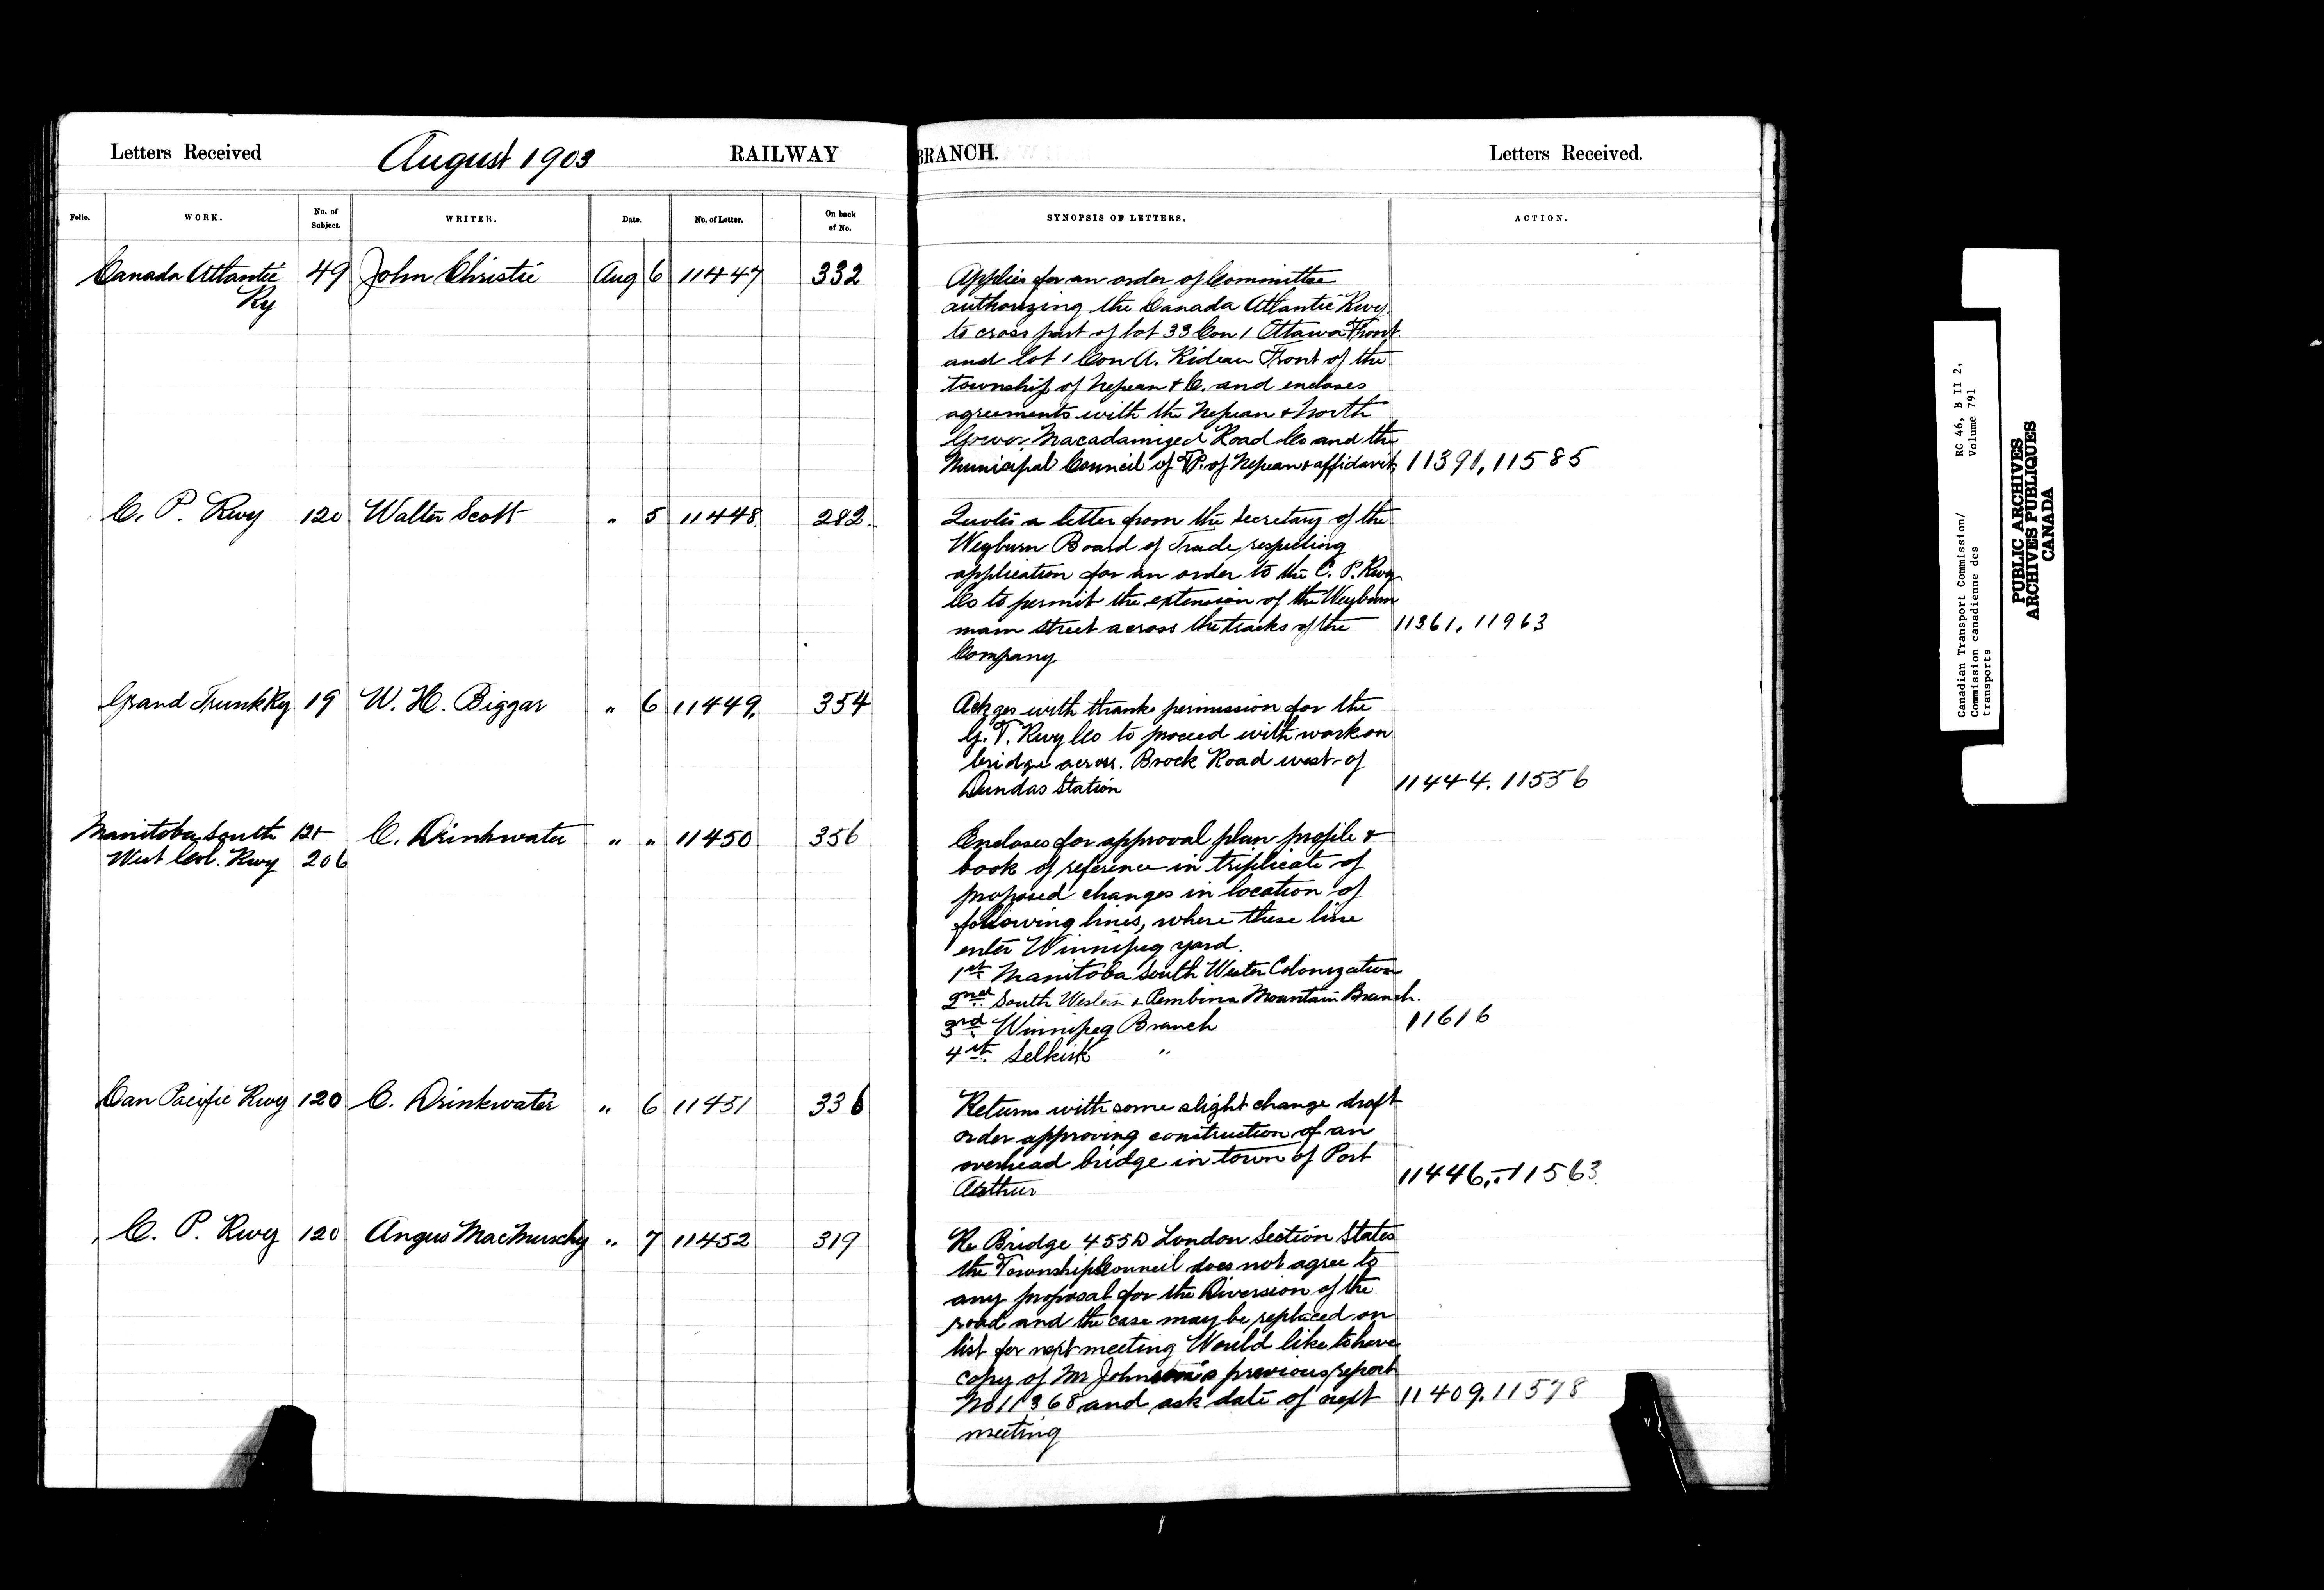 Letters Received August 1903 RAILWAY BRANCH. Letters Received.
Folio. WORK. No. of Subject. WRITER. Date. No. of Letter. On back of No. SYNOPSIS OF LETTERS. ACTION.
Canada Atlantic 49 John Christie Aug 6 11447 332 Applies for an order of Committee
Ry authorizing the Canada Atlantic Rwy.
to cross part of lot 33 Con 1 Ottawa Front
and lot 1 Con A. Rideau Front of the
township of Nepean & C. and encloses
agreements with the Nepean & North
Gower Macadamized Road Co and the
Municipal Council of TP. of Nepean & affidavit, 11391, 11585
C. P. Rwy 120 Walter Scott " 5 11448 282. Quotes a letter from the Secretary of the
Weyburn Board of Trade respecting
application for an order to the C. P. Rwy
Co to permit the extension of the Weyburn
main street across the tracks of the 11361, 11963
Company
Grand Trunk Ry 19 W. H. Biggar " 6 11449. 354 Ackges with thanks permission for the
G. T. Rwy Co to proceed with work on
bridge across. Brock Road west of
Dundas Station 11444. 11556
Manitoba South 121 C. Drinkwater " " 11450 356 Encloses for approval plan profile &
West Col. Rwy 206 book of reference in triplicate of
proposed changes in location of
following lines, where these line
enter Winnipeg yard.
1st Manitoba South Wester Colonization
2nd South Western & Pembina Mountain Branch.
3rd Winnipeg Branch 11616
4st. Selkirk "
Can Pacific Rwy 120 C. Drinkwater " 6 11451 336 Returns with some slight change draft
order approving construction of an
overhead bridge in town of Port
Arthur 11446, 11563
C. P. Rwy 120 Angus MacMurchy " 7 11452 319 Re Bridge 455 D London Section States
the Township Council does not agree to
any proposal for the Diversion of the
road and the case may be replaced on
list for next meeting Would like to have
copy of Mr Johnson's previous report
No 11368 and ask date of next 11409, 11578
meeting
Canadian Transport Commission/ RG 46, B II 2,
Commission canadienne des Volume 791
transports
PUBLIC ARCHIVES
ARCHIVES PUBLIQUES
CANADA